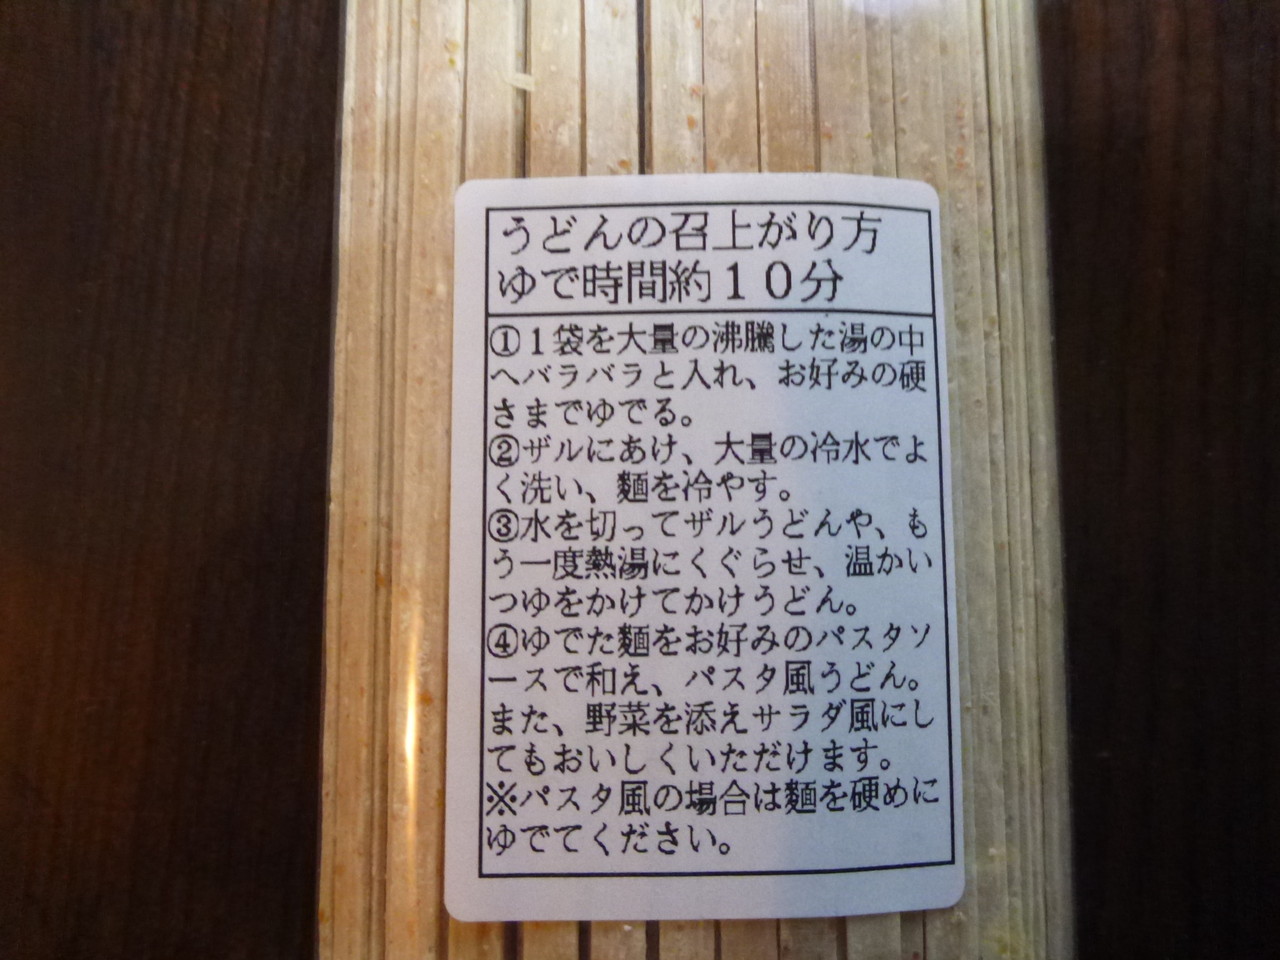 うどんの召上がり方
ゆで時間約１０分
①１袋を大量の沸騰した湯の中
へバラバラと入れ、お好みの硬
さまでゆでる。
②ザルにあけ、大量の冷水でよ
く洗い、麺を冷やす。
③水を切ってザルうどんや、も
う一度熱湯にくぐらせ、温かい
つゆをかけてかけうどん。
④ゆでた麺をお好みのパスタソ
ースで和え、パスタ風うどん。
また、野菜を添えサラダ風にし
てもおいしくいただけます。
※パスタ風の場合は麺を硬めに
ゆでてください。